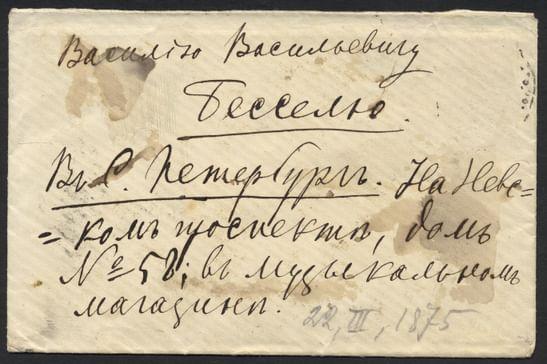 Василію Васильевичу
Бесселю.
Въ С. Петербургъ. На Невс=
= комъ проспектѣ, домъ
№ 58; въ музыкальномъ
магазинѣ.
22, III, 1875